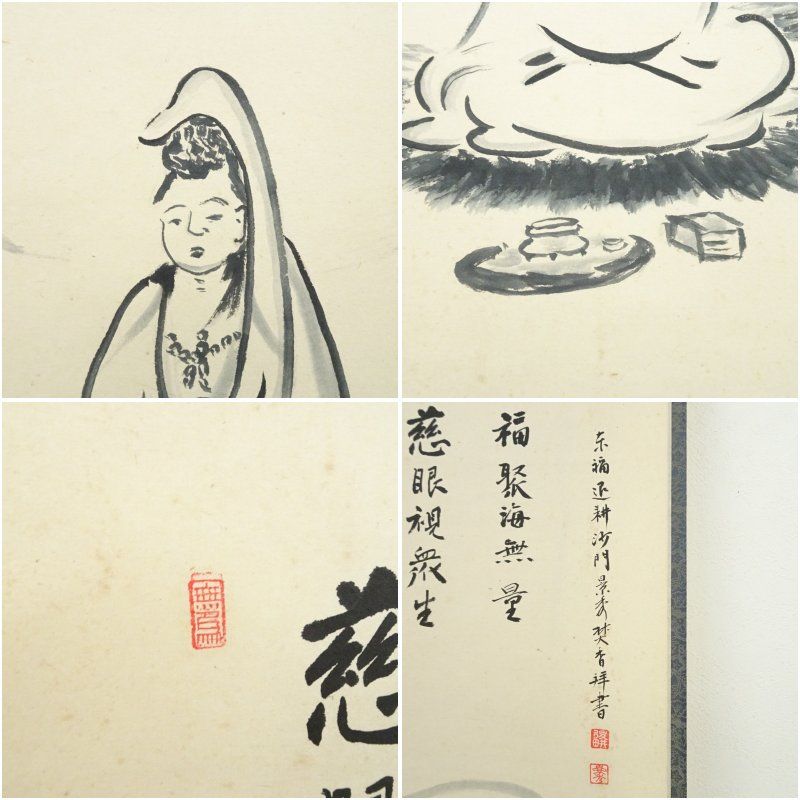 慈
慈眼視衆生
福聚海無量
東福退耕沙門景秀焚香拜書
退耕